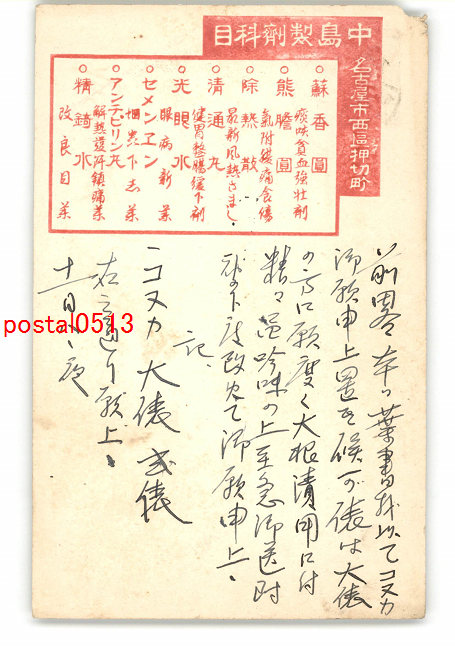 中島製劑科目
名古屋市西區押切町
○蘇香圓 痰咳貧血強壮劑
○熊膽圓 氣附腹痛食傷
○除熱散 最新風熱さまし
○清通丸 健胃整腸緩下劑
○光眼水 眼病新藥
○セメンエン 蛔虫下し藥
○アンチピリン丸 解熱鎮痛藥
○精錡水 改良目藥
前略 本日葉書ヲ以てコヌカ
御願申上置き候が俵は大俵
の方に願度く大根漬用に付
精々御吟味の上至急御送附
御願申上
記
一コヌカ 大俵 弐俵
右之通り願上
十一日 夜
postal0513